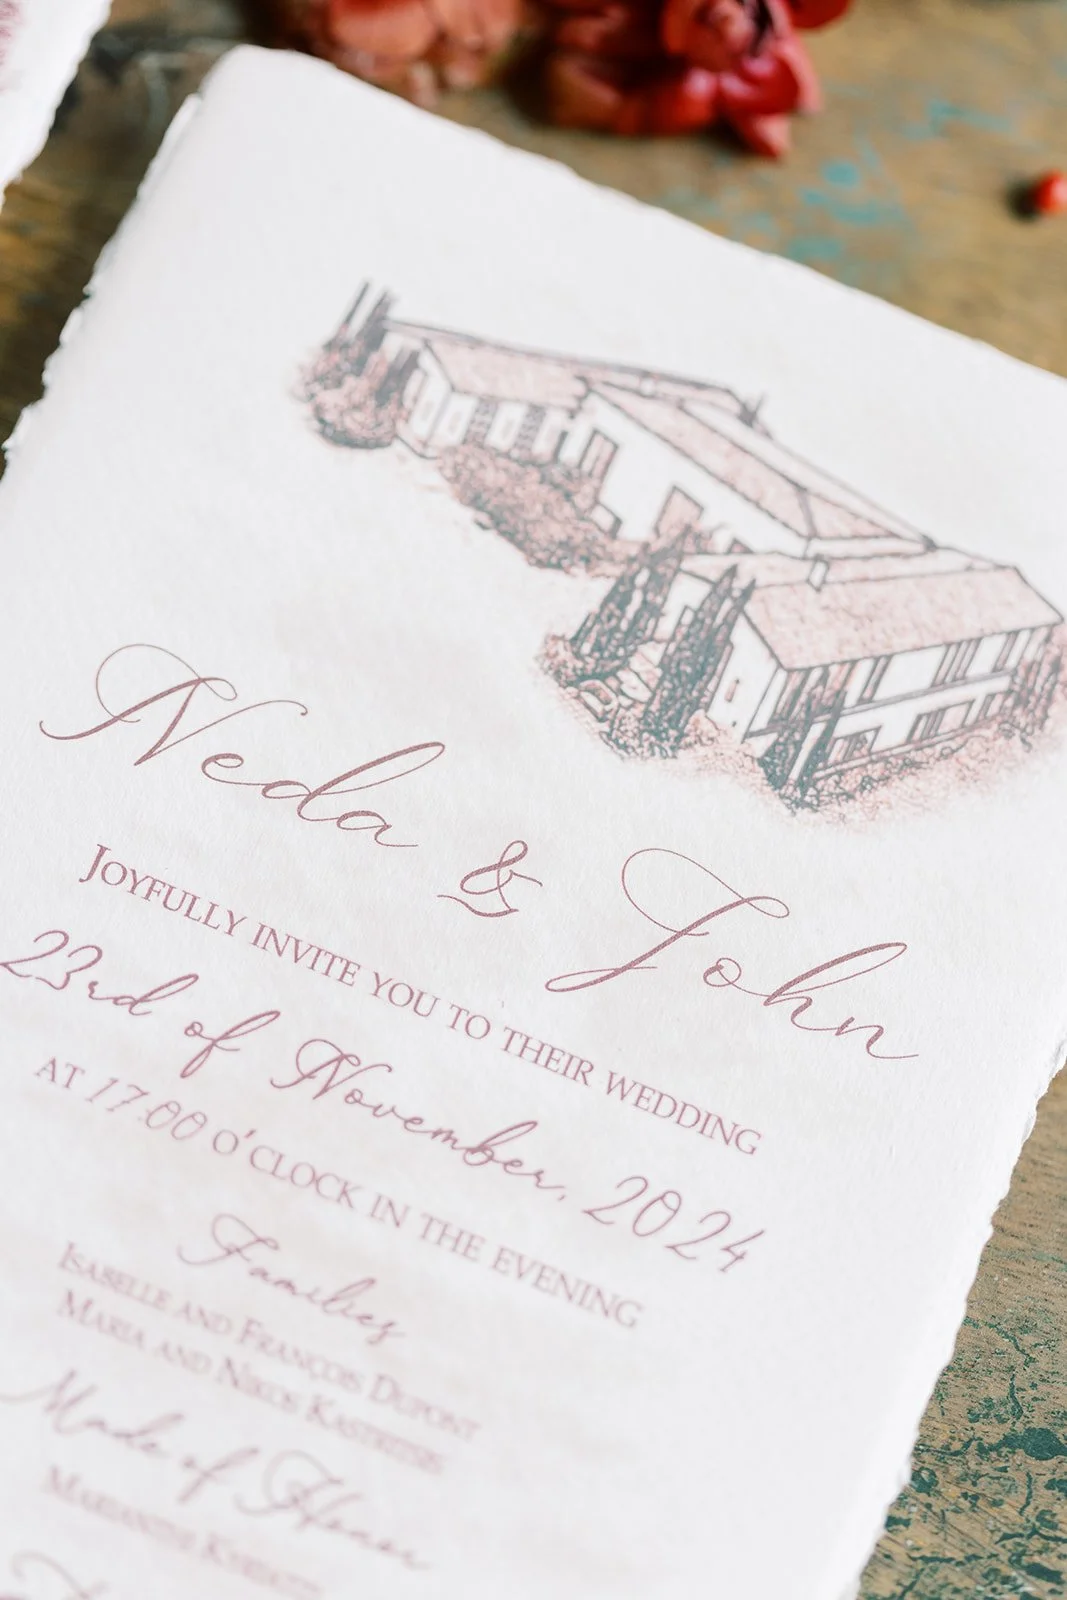 Neda & John
JOYFULLY INVITE YOU TO THEIR WEDDING
23rd of November, 2024
AT 17:00 O'CLOCK IN THE EVENING
Families
ISABELLE AND FRANÇOIS DUPONT
MARIA AND NIKOS
Made of Honor